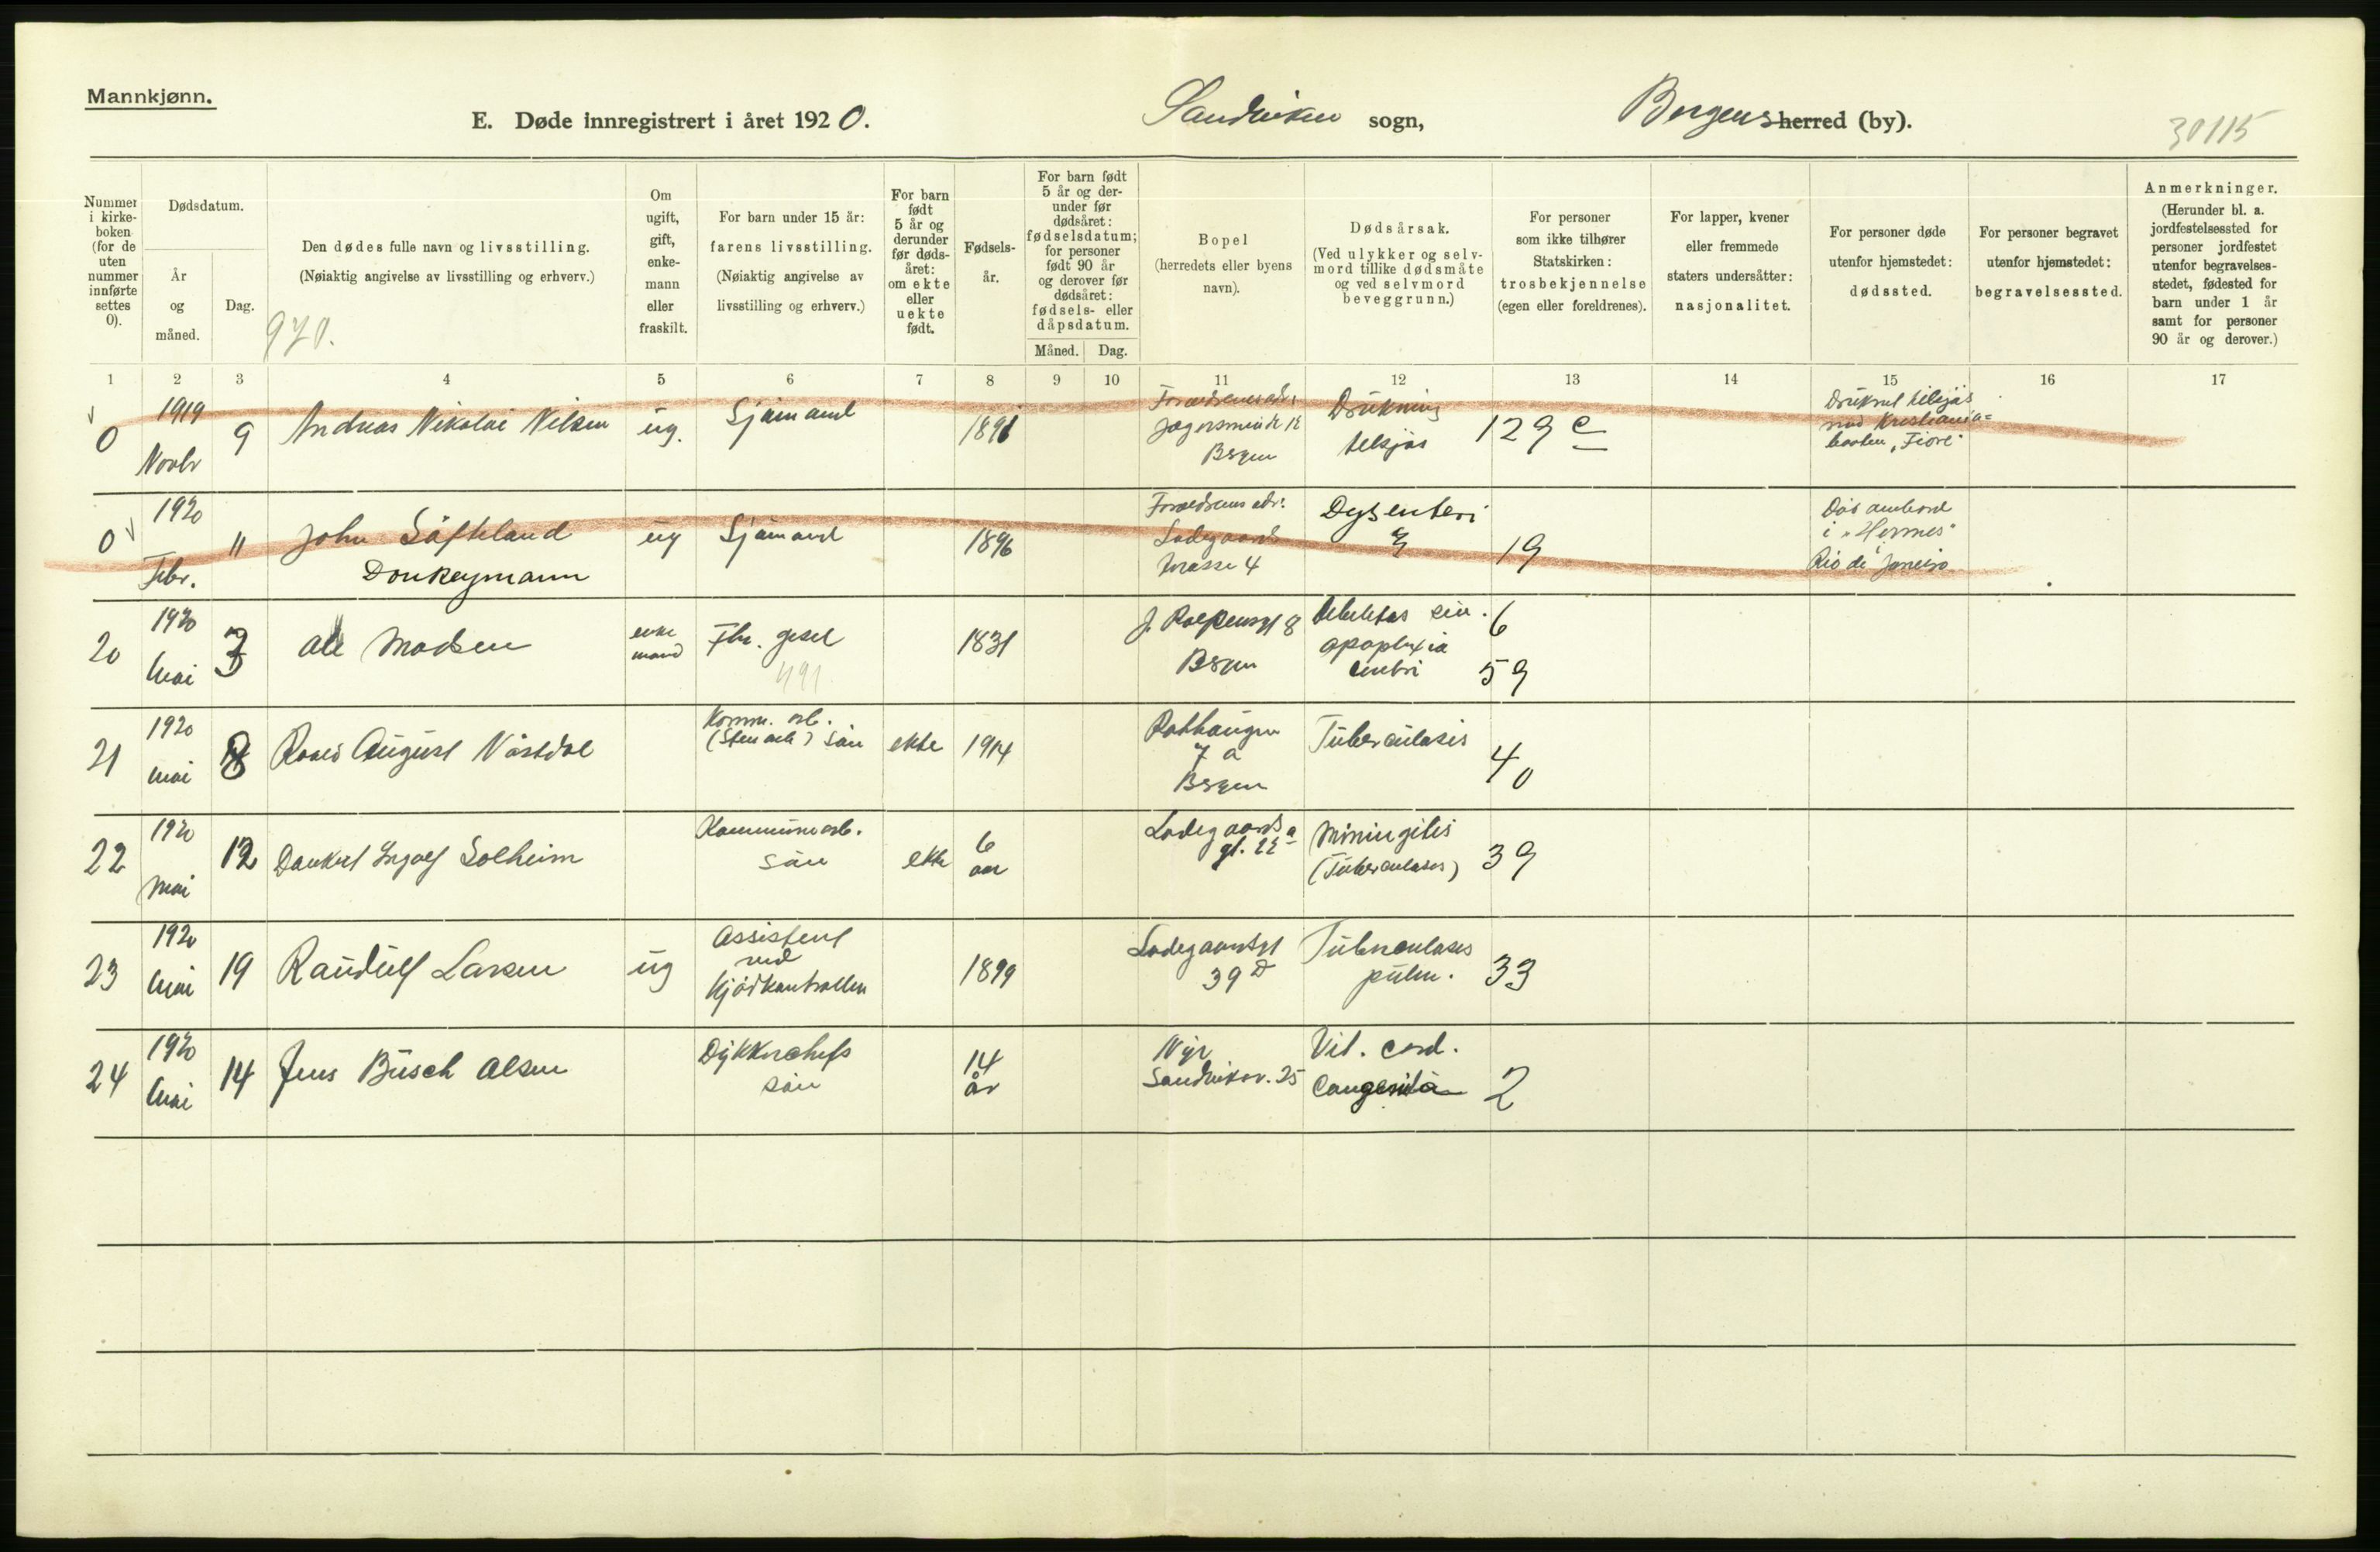 Mannkjønn.
E. Døde innregistrert i året 1920. Sandviken sogn, Bergens herred (by). 30115
Nummer i kirkeboken (for de uten nummer innførte settes 0).
Dødsdatum.
År og måned.
Dag.
Den dødes fulle navn og livsstilling.
(Nøiaktig angivelse av livsstilling og erhverv.)
970.
Om ugift, gift, enkemann eller fraskilt.
For barn under 15 år: farens livsstilling. (Nøiaktig angivelse av livsstilling og erhverv.)
For barn født 5 år og derunder før dødsåret: om ekte eller uekte født.
Fødselsår.
For barn født 5 år og derunder før dødsåret: fødselsdatum; for personer født 90 år og derover før dødsåret: fødsels- eller dåpsdatum.
Måned. Dag.
Bopel (herredets eller byens navn).
Dødsårsak. (Ved ulykker og selvmord tillike dødsmåte og ved selvmord beveggrunn.)
For personer som ikke tilhører Statskirken: trosbekjennelse (egen eller foreldrenes).
For lapper, kvener eller fremmede staters undersåtter: nasjonalitet.
For personer døde utenfor hjemstedet: dødssted.
For personer begravet utenfor hjemstedet: begravelsessted.
Anmerkninger. (Herunder bl. a. jordfestelsessted for personer jordfestet utenfor begravelsesstedet, fødested for barn under 1 år samt for personer 90 år og derover.)
1 2 3 4 5 6 7 8 9 10 11 12 13 14 15 16 17
0 1919 Novbr 9 Andreas Nikolai Nilsen ug. Sjømand 1891
Bergen
Drukning tilsjøs 129 e
Druknet tilsjøs med Kristianiabaaten "Fiore"
0 1920 Febr. 11 John Søfteland Donkeymann ug Sjømand 1896
Forældrenes adr: Ladegaards terasse 4
Dysenteri 19
Død ombord i "Hermes" i Rio de Janeiro
20 1920 Mai 3 Ole Madsen enkemand Fhv. gesel 491 1831
Bergen
Debilitas sen. apoplexia cerebri 6 59
21 1920 Mai 8 August Nøstdal
Komm. arb. (Stenarb) søn ekte 1914
Rothaugen 7 a Bergen
Tuberculosis 40
22 1920 Mai 12 Dankert Ingolf Solheim
Kommunearb. søn ekte 6 aar
Ladegaards gt. 22 a
Miningitis (Tuberculosis) 39
23 1920 Mai 19 Randulf Larsen ug
Assistent ved Kjødkontrollen 1899
Ladegaardsgt 39 D
Tuberculosis pulm. 33
24 1920 Mai 14 Jens Busch Olsen
Dykkerchefs søn 14 år
Nye Sandviksv. 25
Vit. cord. Congenita 2